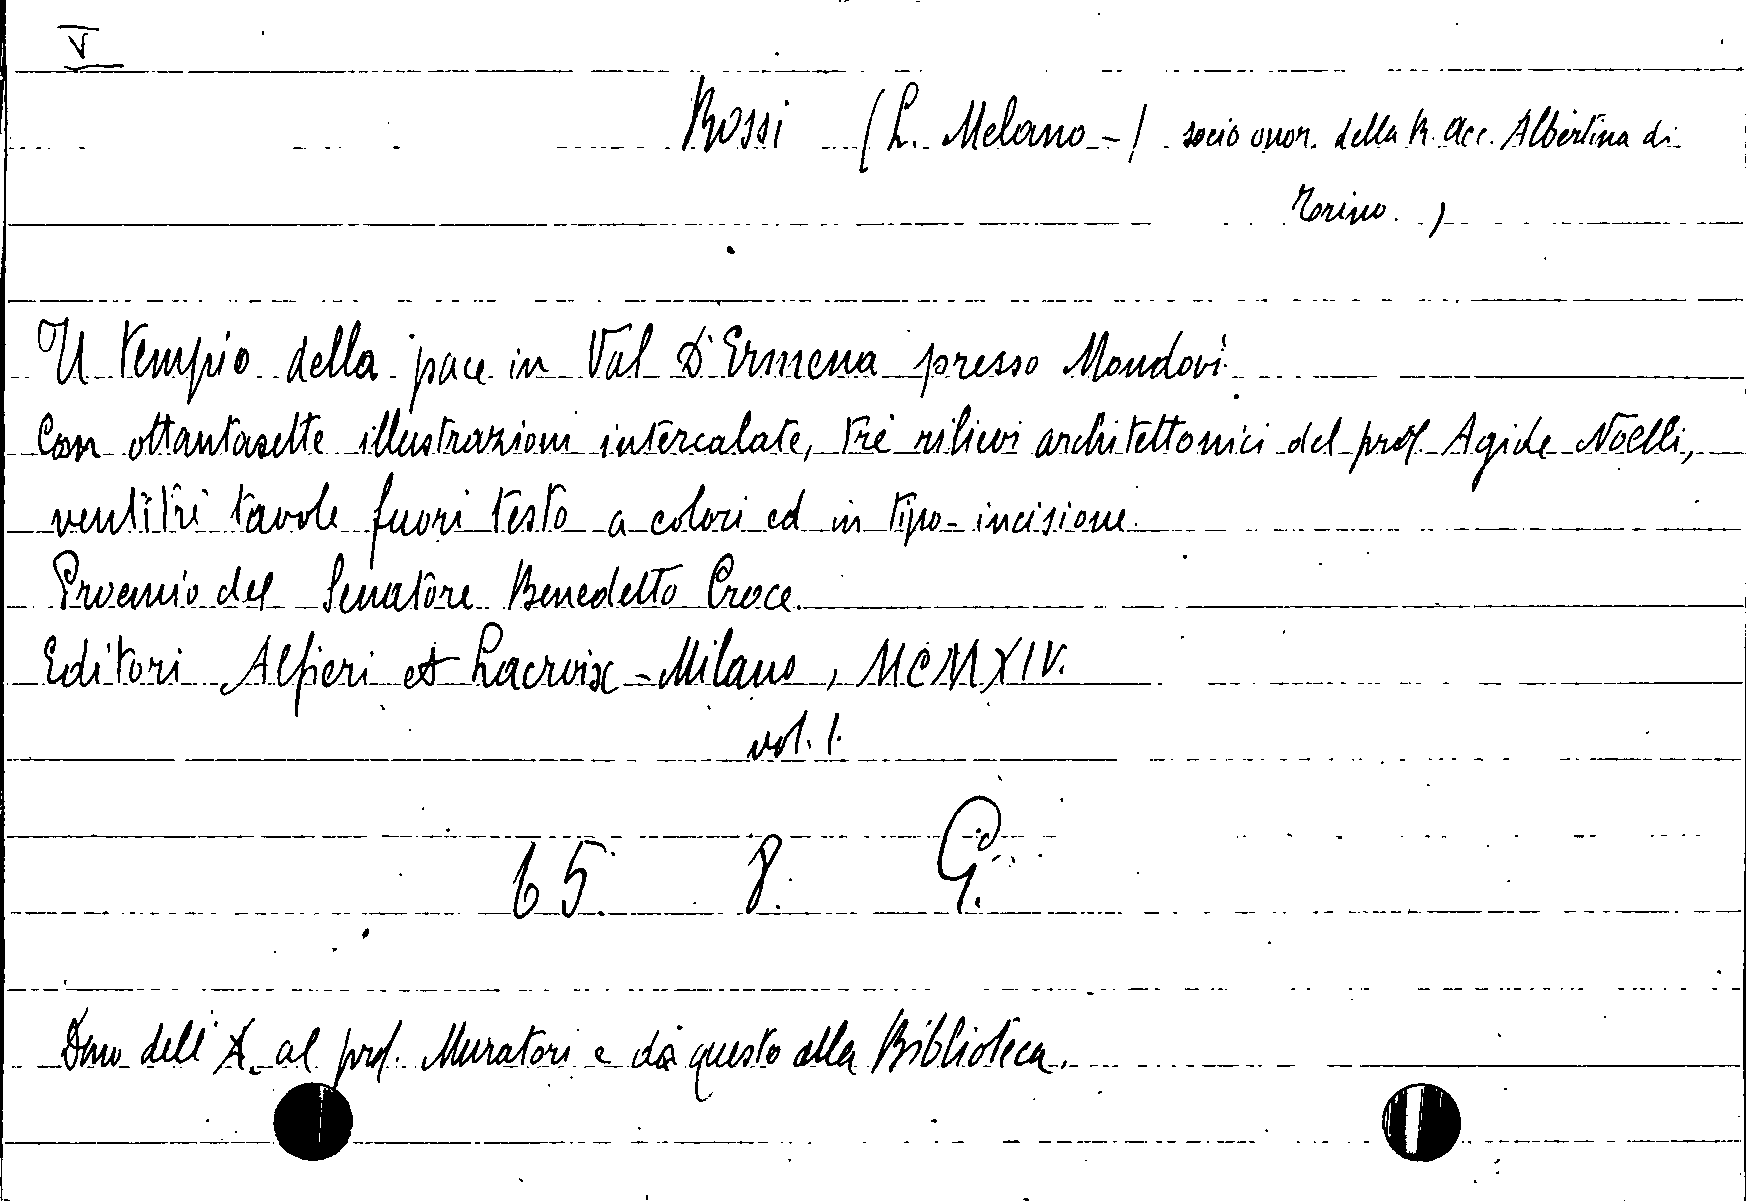 V
Rossi (L. Melano-) socio onor. della R. Acc. Albertina di
Torino.)
Il tempio della pace in Val D'Ermena presso Mondovì.
Con ottantasette illustrazioni intercalate, tre rilievi architettonici del prof. Agide Noelli,
ventitrè tavole fuori testo a colori ed in tipo-incisione.
Proemio del Senatore Benedetto Croce.
Editori Alfieri et Lacroix - Milano, MCMXIV.
vol. 1.
65. 8. G.
Dono dell'A. al prof. Muratori e da questo alla Biblioteca.